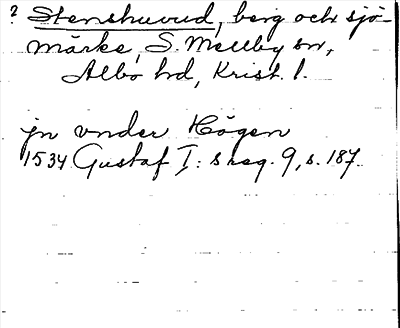 ? Stenshuvud, berg och sjö-
märke, S. Mellby sn,
Albo hd, Krist. l.
jn vnder Högen
1534 Gustaf I: s reg. 9, s. 187.